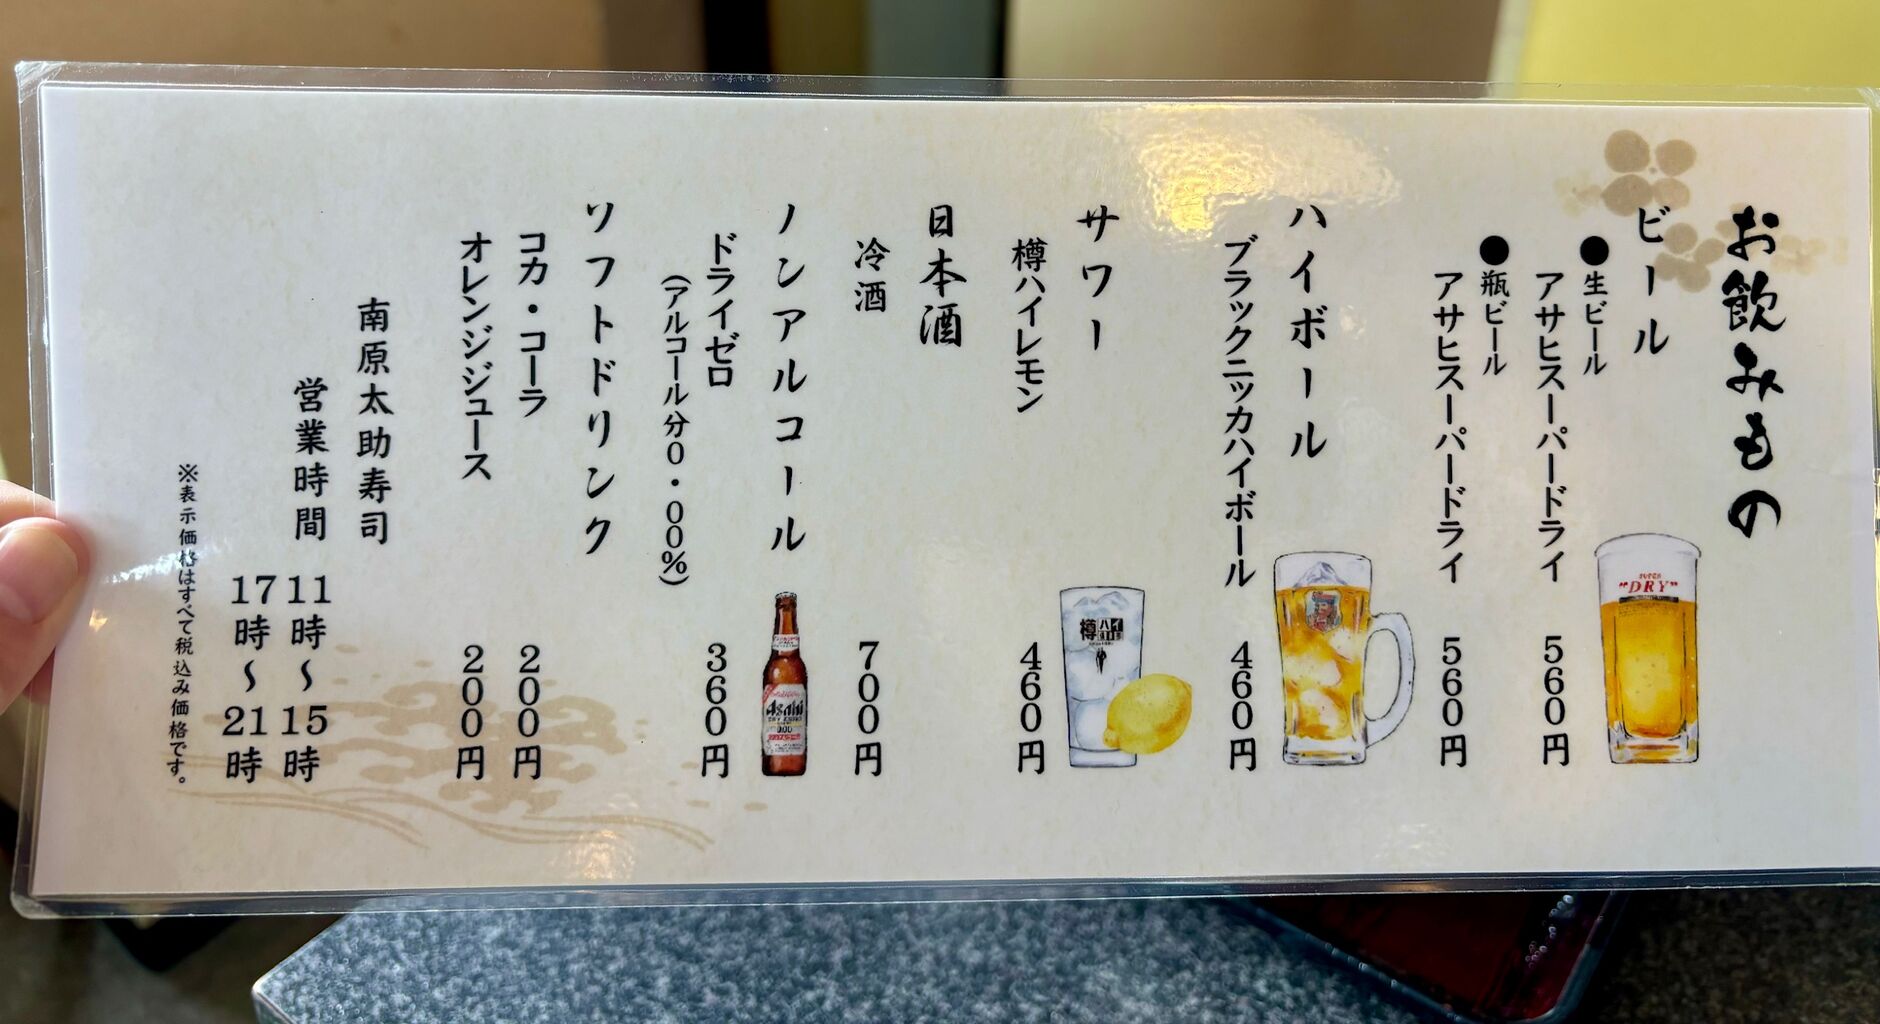 お飲みもの
ビール
●生ビール
アサヒスーパードライ 560円
●瓶ビール
アサヒスーパードライ 560円
ハイボール
ブラックニッカハイボール 460円
サワー
樽ハイレモン 460円
日本酒
冷酒 700円
ノンアルコール
ドライゼロ 360円
(アルコール分0・00%)
ソフトドリンク
コカ・コーラ 200円
オレンジジュース 200円
南原太助寿司
営業時間 11時〜15時
17時〜21時
※表示価格はすべて税込み価格です。
SUPER
"DRY"
樽ハイ
Asahi
0.00